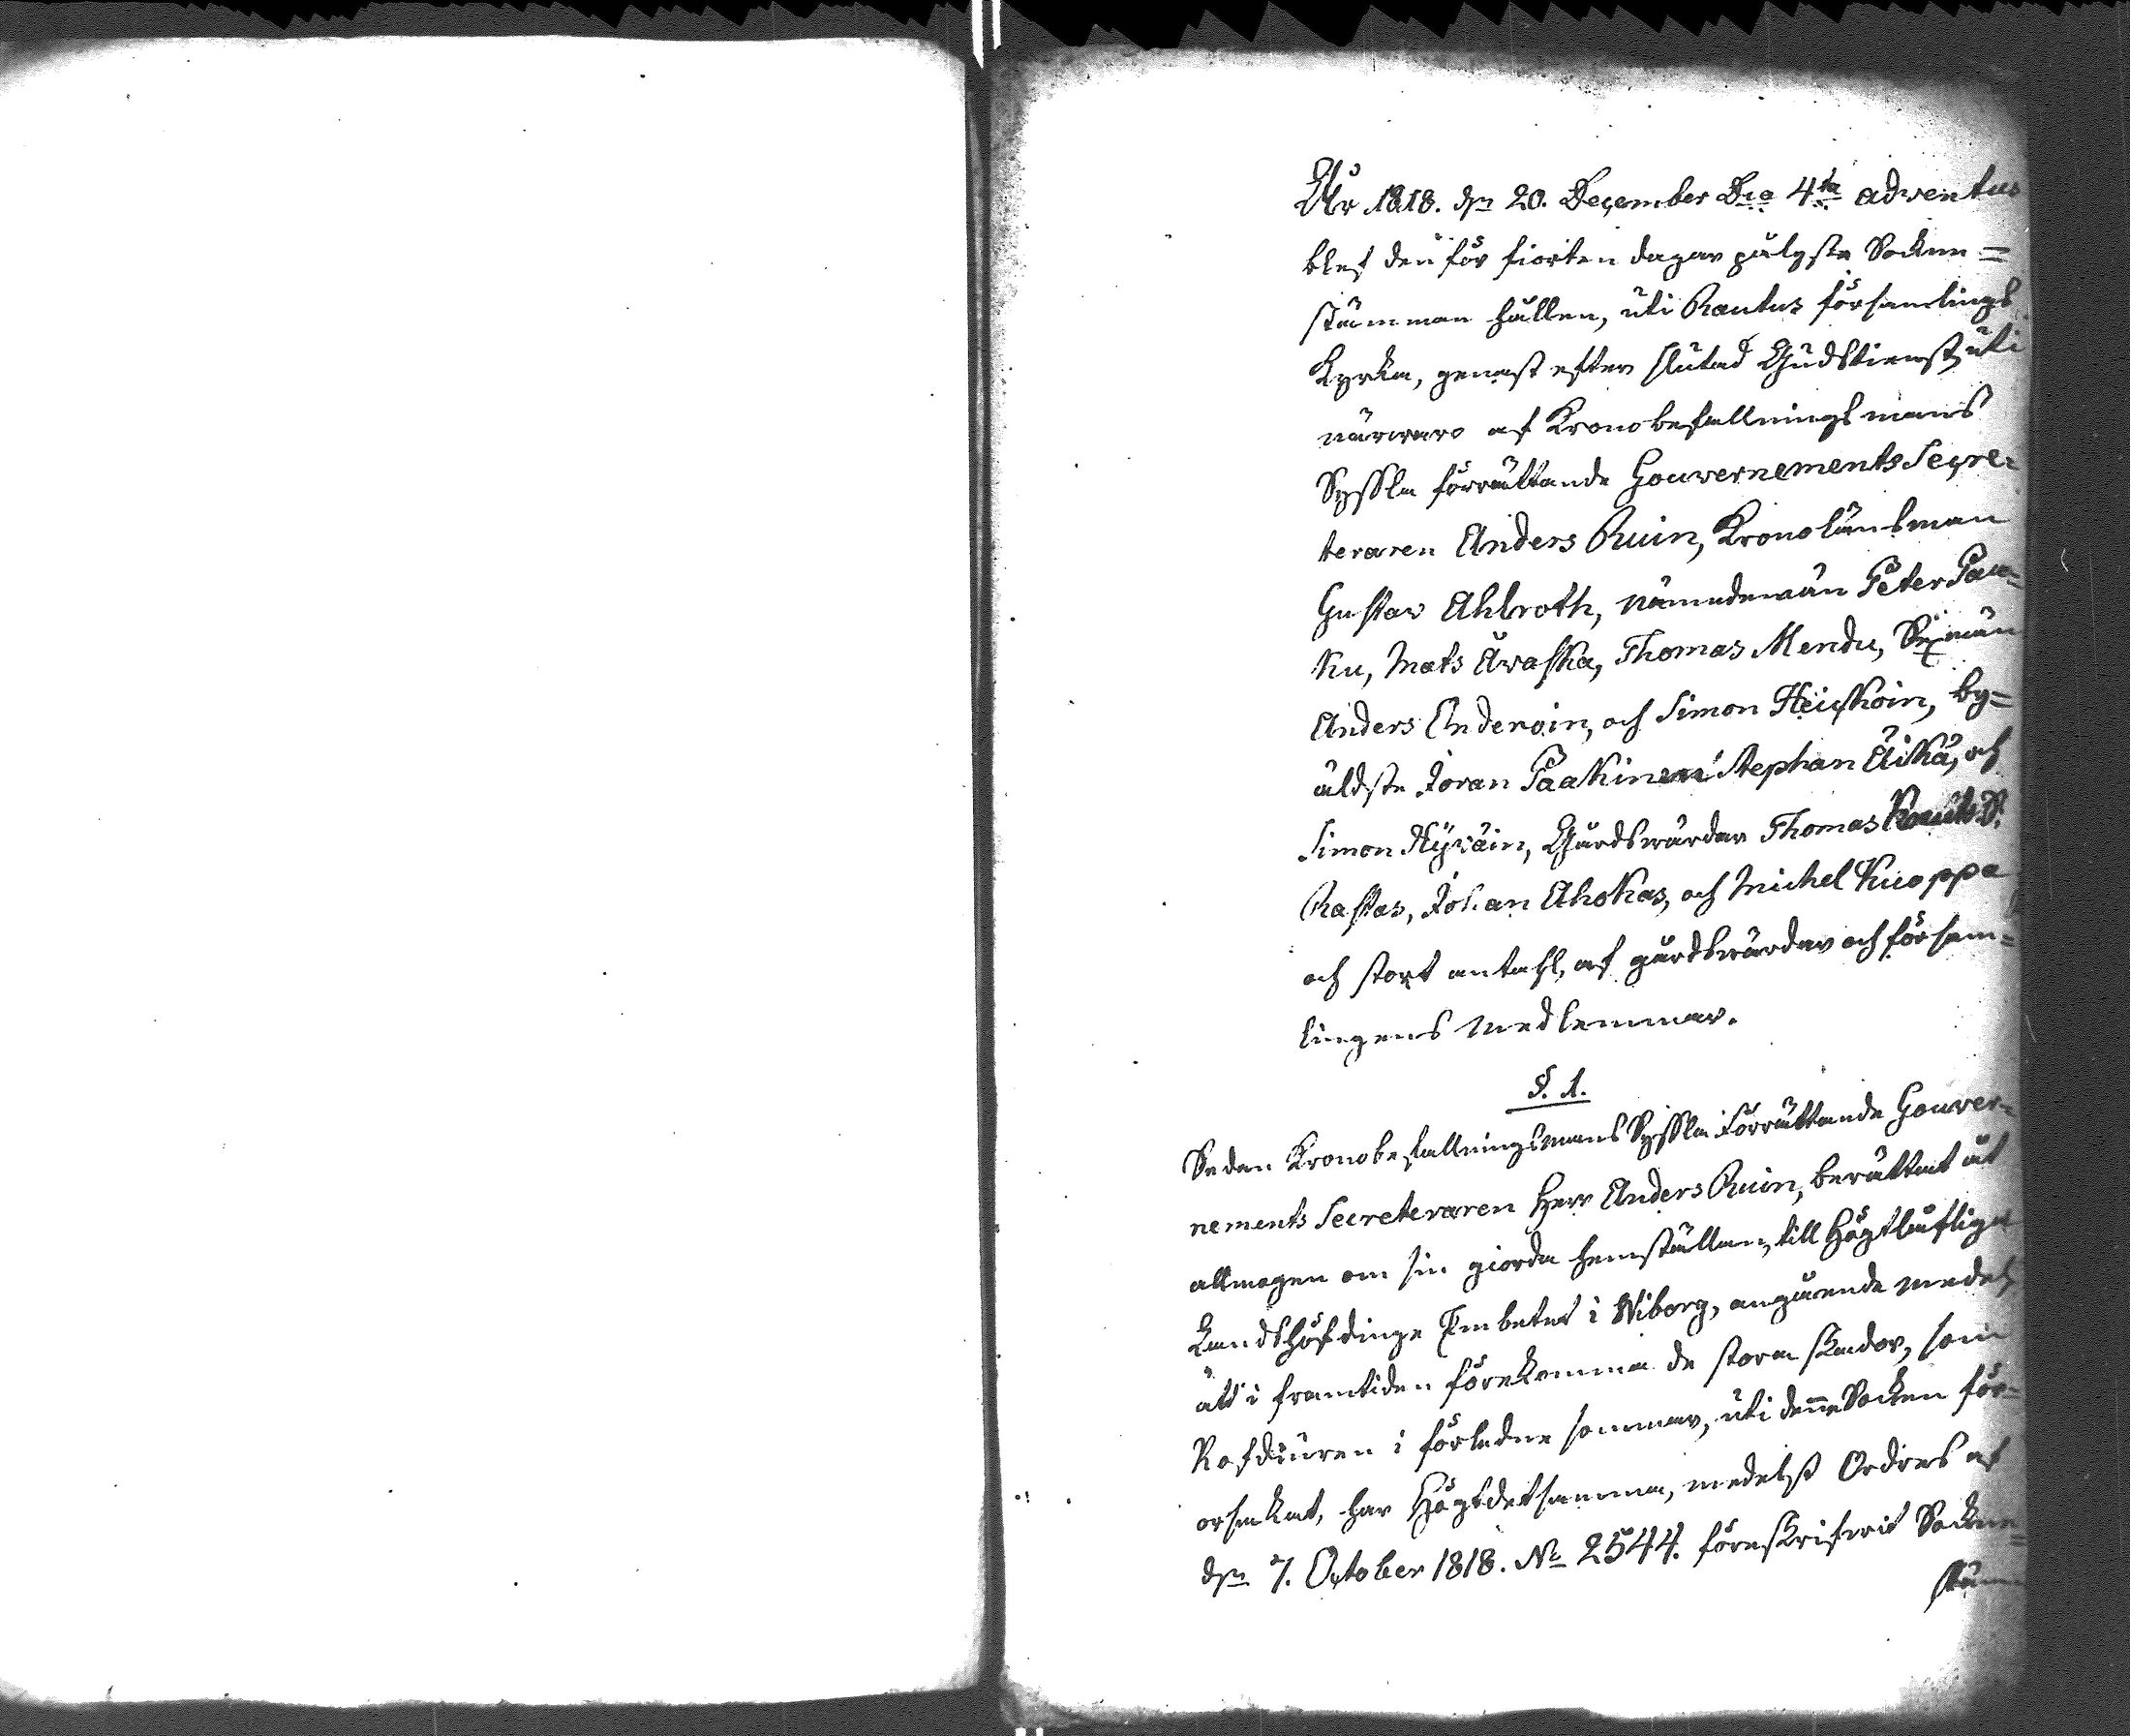 År 1818. dn 20. December Dca 4ta adventus
blef den för fiorton dagar pålyste Sockne=
stämman hållen, uti Rautus församlings
Kyrka, genast efter slutad Gudstienst, uti
närwaro af Kronobefallningsmans
Syssla förrättande Gouvernements Secre=
teraren Anders Ruin, Kronolänsman
Gustav Ahlroth, nämndemän Peter Pau=
ku, Mats Äväska, Thomas Mendu, Sexmän
Anders Inderoin, och Simon Heiskoin, by=
äldste Jöran Paakinen Stephan Äikä, och
Simon Hyväin, Gårdswärdar Thomas
Rastas, Johan Ahokas, och Michel Kuoppa
och stort antahl, af gårdswärdar och försam=
lingens medlemmar.
§. 1.
Sedan Kronobefallningsmans Syssla Förrättande Gouver=
nements Secreteraren Herr Anders Ruin, berättat åt
allmogen om sin giorda hemställan, till Högtlåfliga
Landshöfdinge Embetet i Wiborg, angående medel,
att i framtiden förekomma de stora skador, som
Rofdiuren i förledne sommar, uti denne Socken för=
orsakat, har Högtdetsamma, medelst Ordres af
dn 7. October 1818. No 2544. föreskrifwit Sockne=
stäm